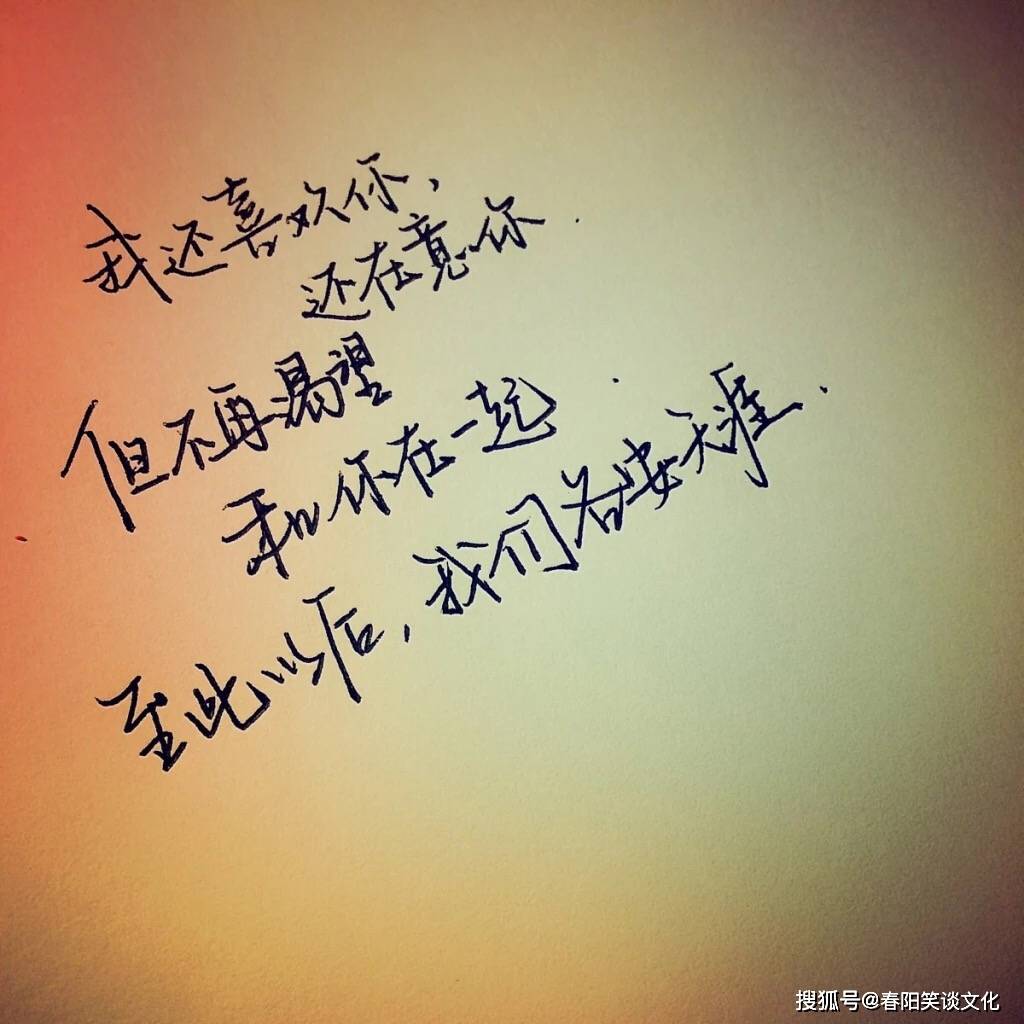 我还喜欢你,
还在意你.
但不再渴望
和你在一起.
至此以后,我们各安天涯.
搜狐号@春阳笑谈文化